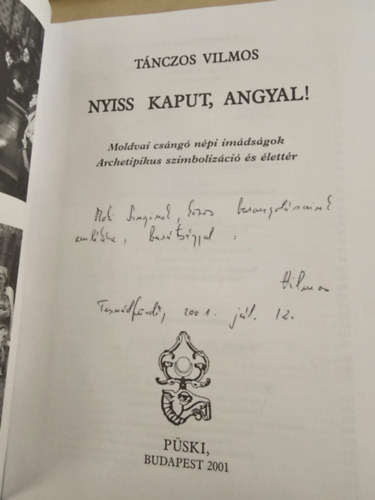 TÁNCZOS VILMOS
NYISS KAPUT, ANGYAL!
Moldvai csángó népi imádságok
Archetipikus szimbolizáció és élettér
közös barangolásaink
emlékére, barátsággal
Vilmos
2001. júl. 12.
PÜSKI,
BUDAPEST 2001